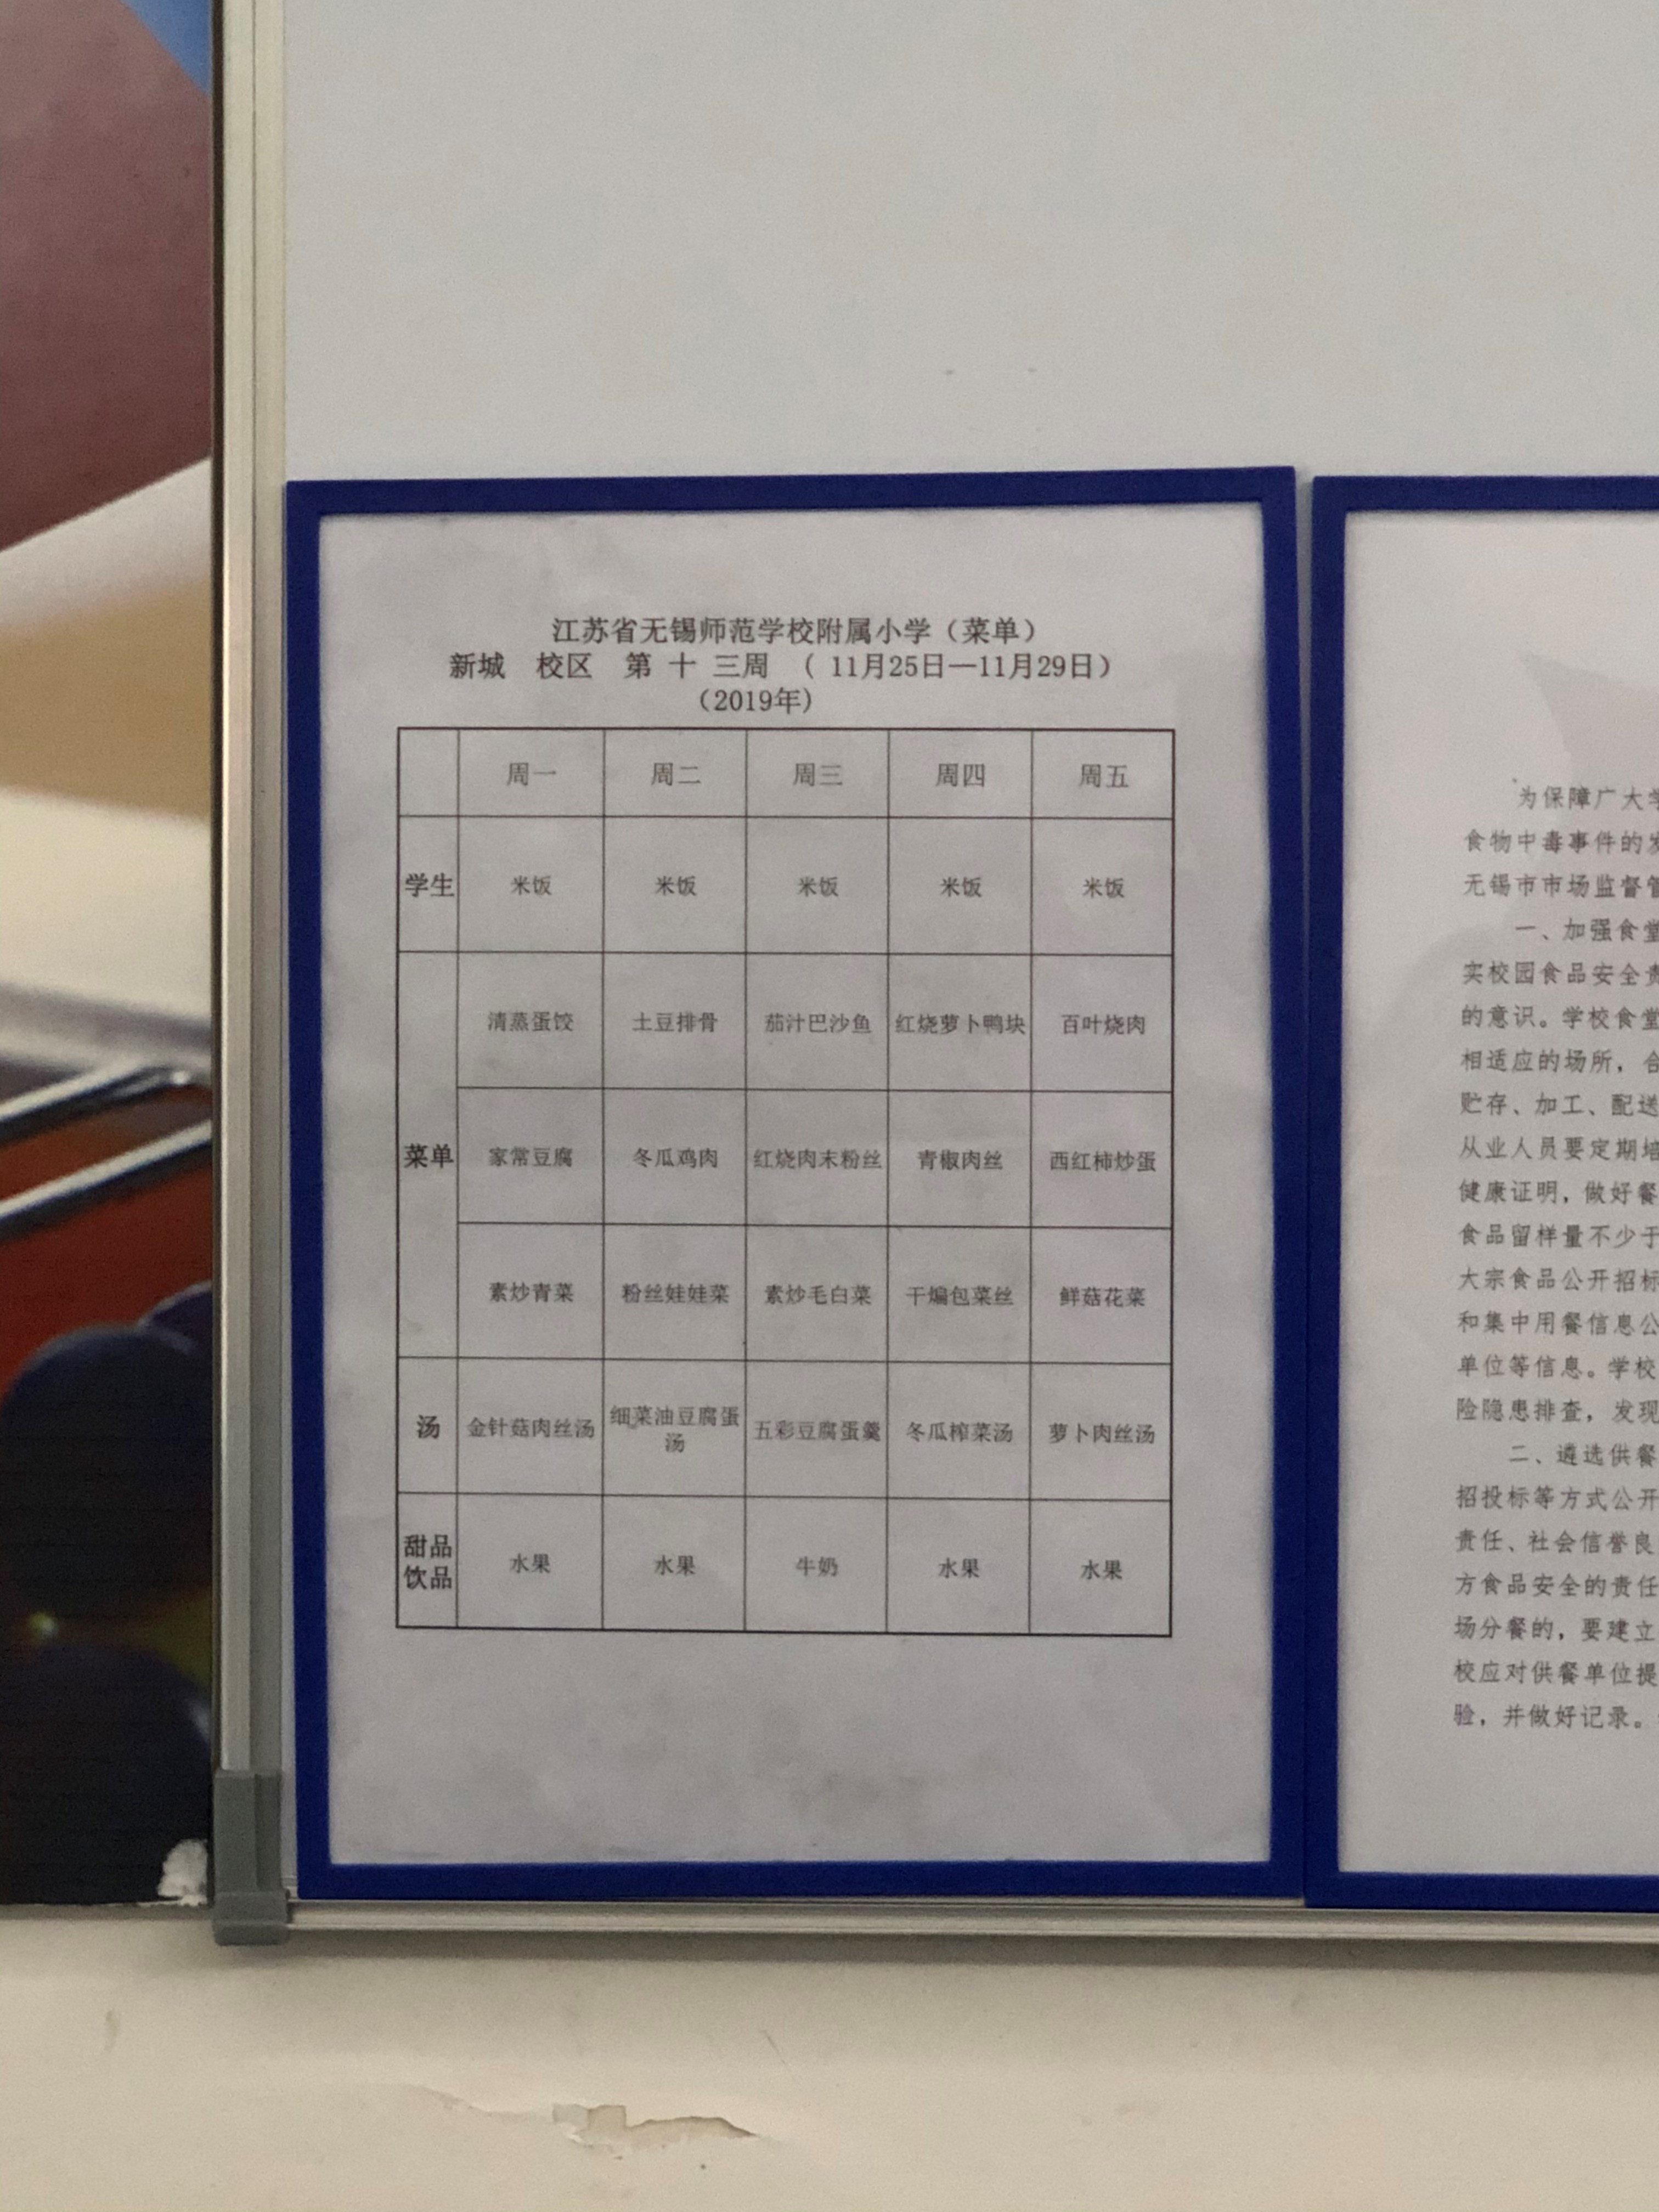 江苏省无锡师范学校附属小学（菜单）
新城 校区 第 十 三周 （ 11月25日—11月29日）
（2019年）
周一 周二 周三 周四 周五
学生 米饭 米饭 米饭 米饭 米饭
清蒸蛋饺 土豆排骨 茄汁巴沙鱼 红烧萝卜鸭块 百叶烧肉
菜单 家常豆腐 冬瓜鸡肉 红烧肉末粉丝 青椒肉丝 西红柿炒蛋
素炒青菜 粉丝娃娃菜 素炒毛白菜 干煸包菜丝 鲜菇花菜
汤 金针菇肉丝汤 细菜油豆腐蛋汤 五彩豆腐蛋羹 冬瓜榨菜汤 萝卜肉丝汤
甜品饮品 水果 水果 牛奶 水果 水果
为保障广大学
食物中毒事件的发
无锡市市场监督管
一、加强食堂
实校园食品安全责
的意识。学校食堂
相适应的场所，合
贮存、加工、配送
从业人员要定期培
健康证明，做好餐
食品留样量不少于
大宗食品公开招标
和集中用餐信息公
单位等信息。学校
险隐患排查，发现
二、遴选供餐
招投标等方式公开
责任、社会信誉良
方食品安全的责任
场分餐的，要建立
校应对供餐单位提
验，并做好记录。